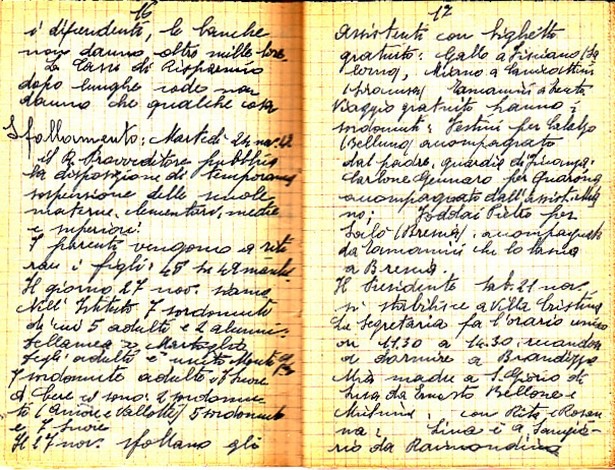 16
i dipendenti, le banche
non danno oltre mille lire.
Le Casse di Risparmio
dopo lunghe code non
danno che qualche cosa
Sfollamento: Martedì 24 nov. 42
il R. Provveditore pubblica
la disposizione di temporanea
sospensione delle scuole
materne, elementari, medie
e superiori.
I parenti vengono a riti
rare i figli: 45 su 49
Il giorno 27 nov. siamo
Nell'Istituto 7 sordomuti
di cui 5 adulti e 2 alunni.
e
Agli adulti è unito
7 sordomute adulte, 7 suore
A sono: 2 sordomu
te e Vallotti, 5 sordomute
e 7 suore
Il 27 nov. sfollano gli
17
assistenti con biglietto
gratuito: Gallo a Fisciano (Sa
lerno), Miano a Canicattini
(Siracusa) Zamarini a
Viaggio gratuito hanno i
sordomuti: Festini per Calalzo
(Belluno) accompagnato
dal padre, guardia di Finanza.
Carbone Gennaro per Quarona
accompagnato dall'assist. Mia
no; Pietro per
Salò (Brescia), accompagnato
da Zamarini che lo lascia
a Brescia.
Il Presidente sab. 21 nov.
si stabilisce a Villa Cristina
La Segretaria fa l'orario unico
ore 11.30 a 14.30 recandosi
a dormire a Brandizzo
Mia madre a S. Giorio di
Susa da Ernesto Bellone e
con Rita e Rosan
na: Lina è a Sangia
rio da Raimondino